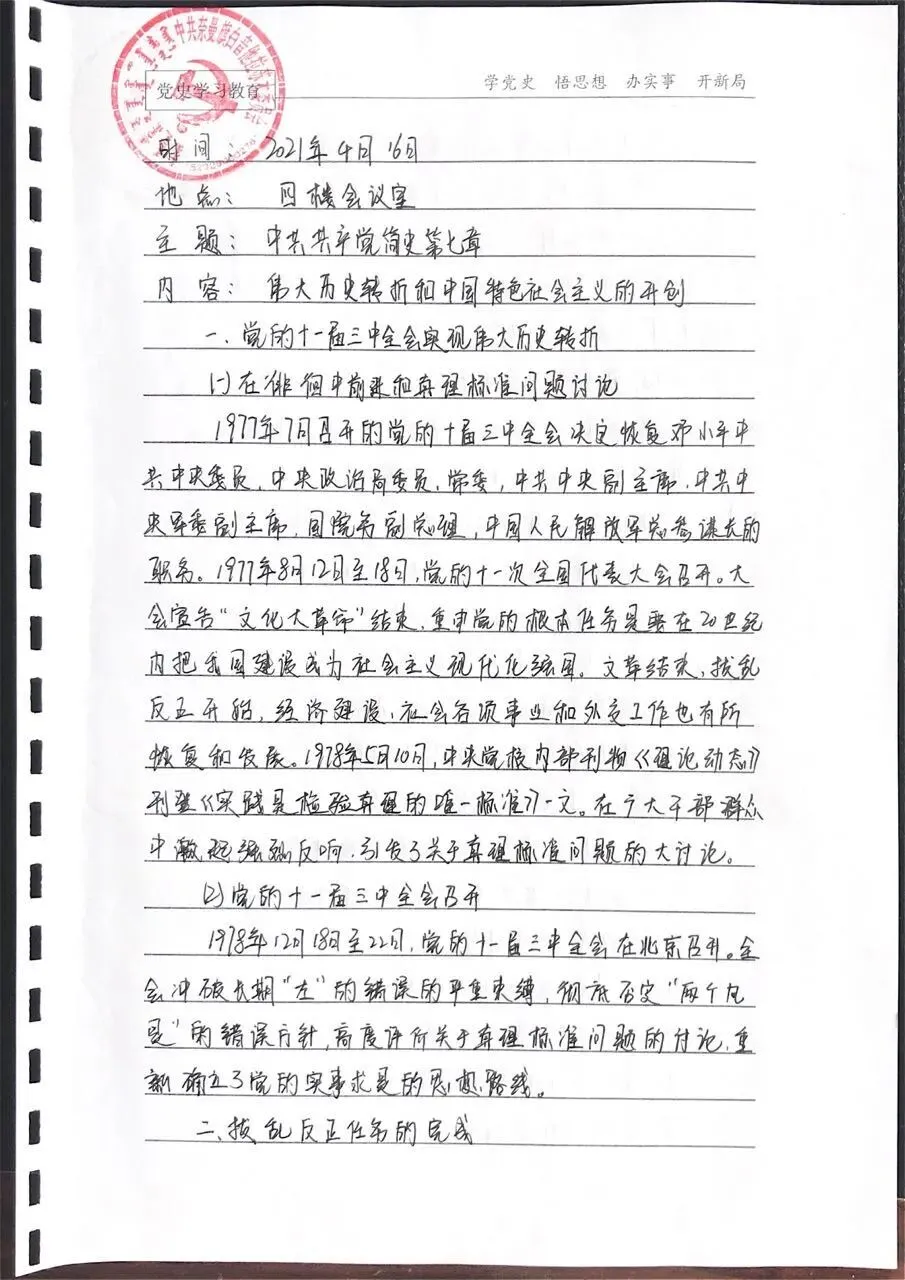 中共奈曼旗白音他拉
党史学习教育
学党史 悟思想 办实事 开新局
时间: 2021年4月16日
地点: 四楼会议室
主题: 中共共产党简史第七章
内容: 伟大历史转折和中国特色社会主义的开创
一、党的十一届三中全会实现伟大历史转折
(一)在徘徊中前进和真理标准问题讨论
1977年7月召开的党的十届三中全会决定恢复邓小平中
共中央委员、中央政治局委员、常委,中共中央副主席、中共中
央军委副主席,国院务副总理,中国人民解放军总参谋长的
职务。1977年8月12日至18日,党的十一次全国代表大会召开。大
会宣告“文化大革命”结束,重申党的根本任务是要在20世纪
内把我国建设成为社会主义现代化强国。文革结束,拨乱
反正开始,经济建设、社会各项事业和外交工作也有所
恢复和发展。1978年5月10日,中央党校内部刊物《理论动态》
刊登《实践是检验真理的唯一标准》一文。在广大干部群众
中激起强烈反响,引发了关于真理标准问题的大讨论。
(2)党的十一届三中全会召开
1978年12月18日至22日,党的十一届三中全会在北京召开。全
会冲破长期“左”的错误的严重束缚,彻底否定“两个凡
是”的错误方针,高度评价关于真理标准问题的讨论,重
新确立了党的实事求是的思想路线。
二、拨乱反正任务的完成